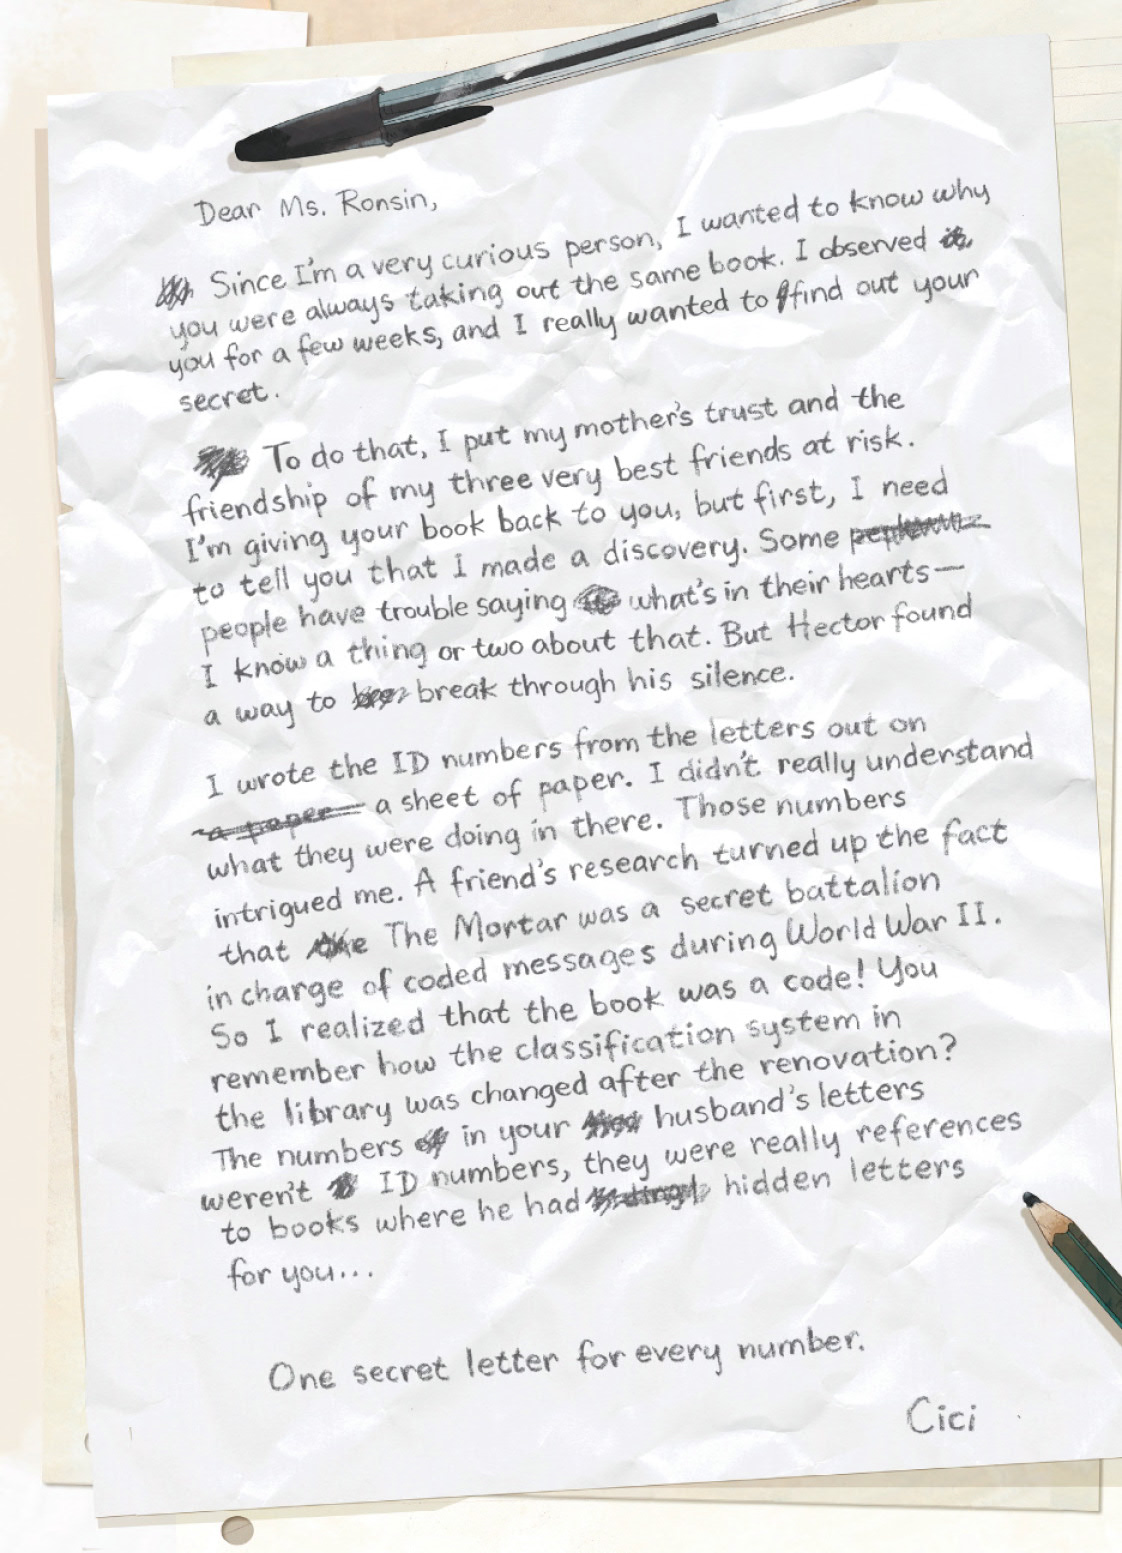 Dear Ms. Ronsin,
Since I'm a very curious person, I wanted to know why
you were always taking out the same book. I observed
you for a few weeks, and I really wanted to find out your
secret.
To do that, I put my mother's trust and the
friendship of my three very best friends at risk.
I'm giving your book back to you, but first, I need
to tell you that I made a discovery. Some
people have trouble saying what's in their hearts—
I know a thing or two about that. But Hector found
a way to break through his silence.
I wrote the ID numbers from the letters out on
a paper a sheet of paper. I didn't really understand
what they were doing in there. Those numbers
intrigued me. A friend's research turned up the fact
that The Mortar was a secret battalion
in charge of coded messages during World War II.
So I realized that the book was a code! You
remember how the classification system in
the library was changed after the renovation?
The numbers in your husband's letters
weren't ID numbers, they were really references
to books where he had hidden letters
for you...
One secret letter for every number.
Cici